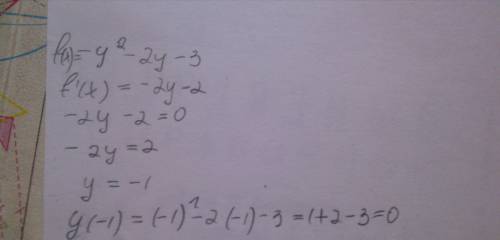 f(x)=-y²-2y-3
f'(x)=-2y-2
-2y-2=0
-2y=2
y=-1
y(-1)=(-1)²-2(-1)-3=1+2-3=0